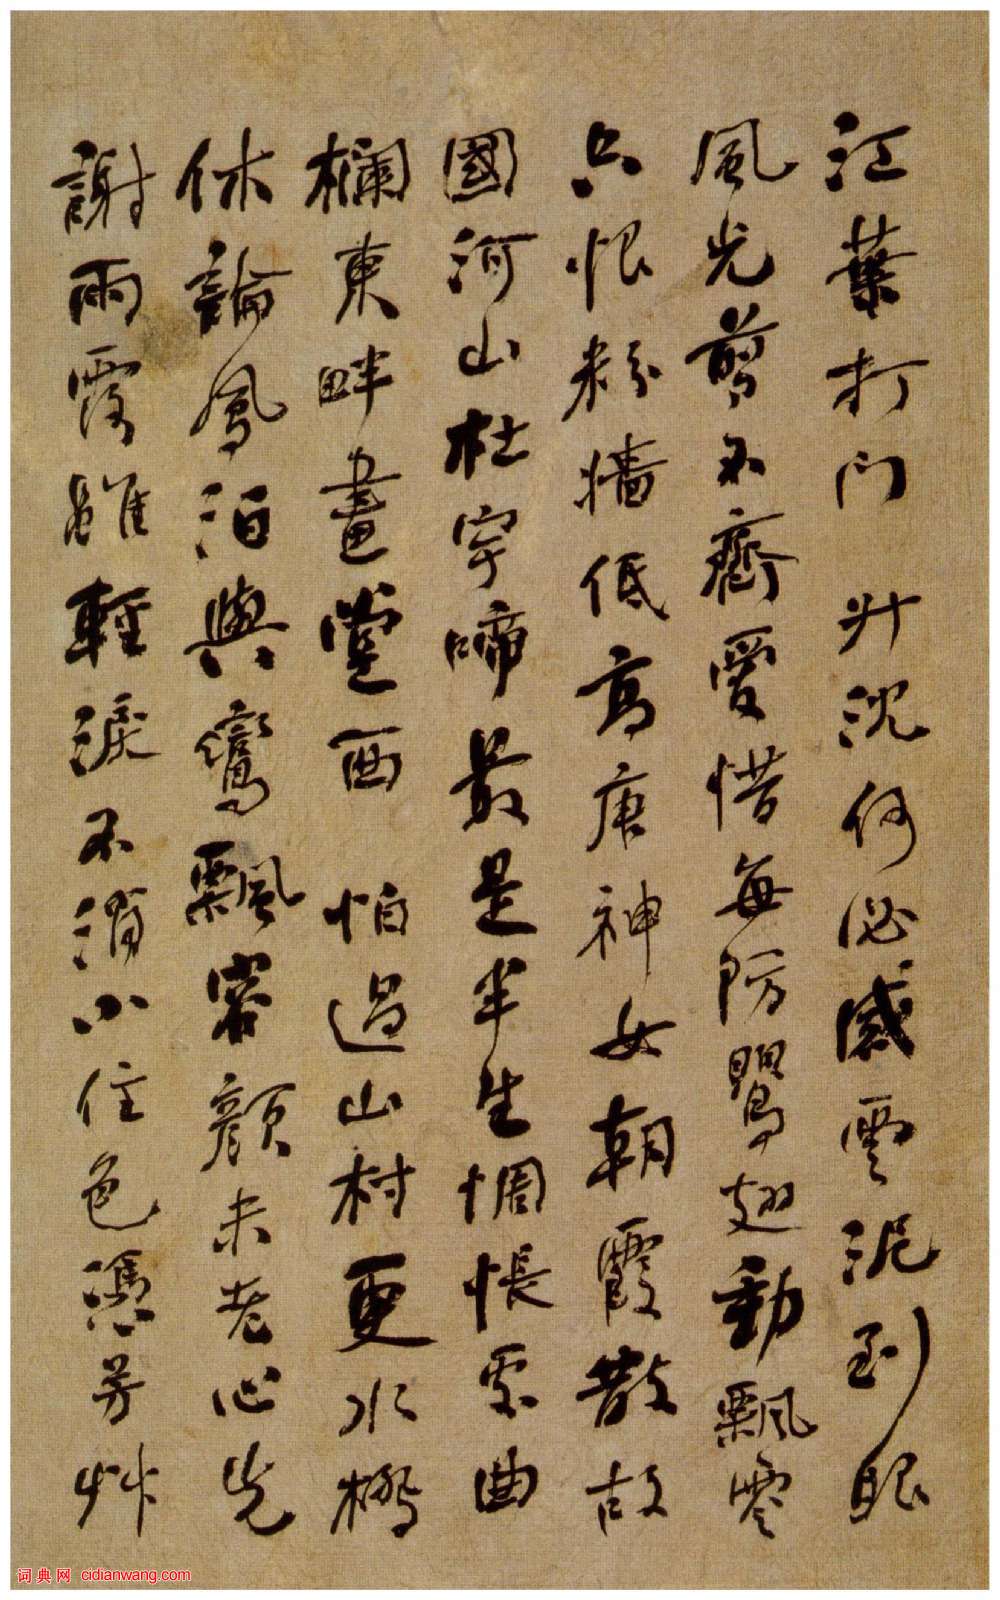 江葉打門 升沈何必感雲泥到眼
風光剪不齊愛惜每防鶯翅動飄零
只恨粉墻低高唐神女朝霞散故
國河山杜宇啼最是半生惆悵處曲
欄東畔畫堂西 怕過山村更水橋
休論鳳泊與鸞飄容顏未老心先
謝雨露雖輕淚不消小住色憑芳艸
词典网 cidianwang.com